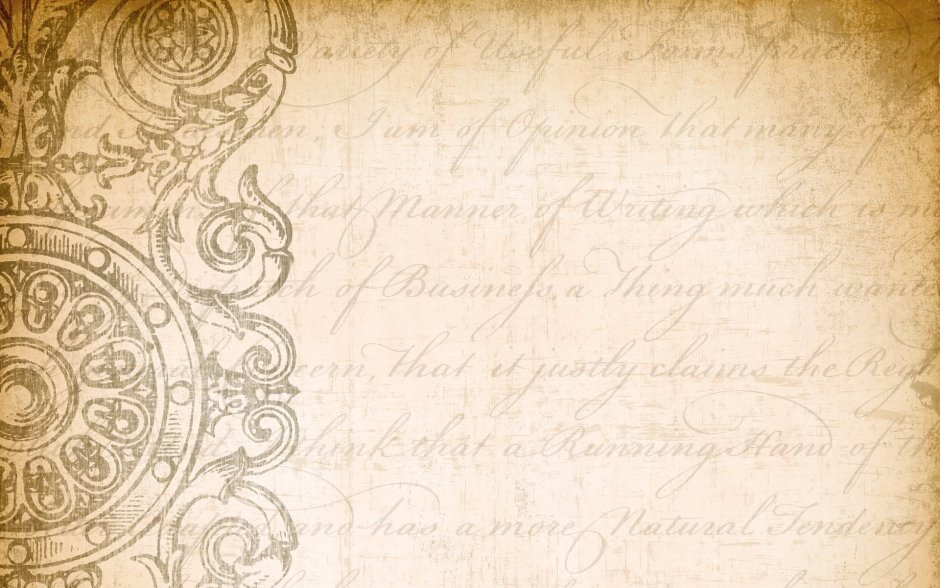 a Variety of Useful Forms practiced
and Specimen; I am of Opinion, that many of
that Manner of Writing which is
of Business, a Thing much
that it justly claims the
think that a Running Hand of
and has a more Natural Tendency